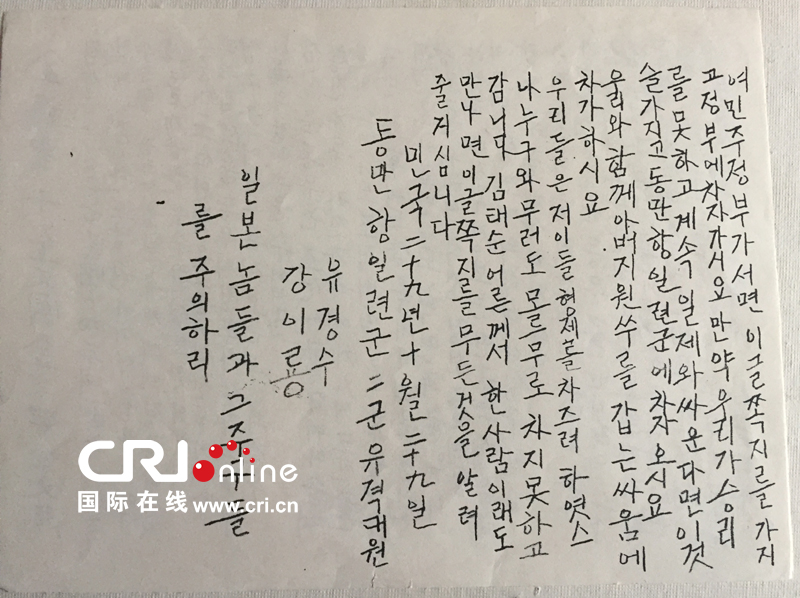 여민주정부가서면이글쪽지를가지
고정부에차자가시요만약우리가승리
를못하고계속일제와싸운다면이것
슬가지고동만항일련군에차자오시요
우리와함께아버지원쑤를갑는싸움에
차가하시요
우리들은저이들형제를차즈려하엿스
나누구와무러도모르무로차지못하고
감니다김태순어른께서한사람이래도
만나면이글쪽지를무든것을알려
줄거심니다
민국二十九년十월二十九일
동만항일련군二군유격대원
유경수
강이룡
일본놈들과그주구들
를주의하리
CRI online
国际在线 www.cri.cn